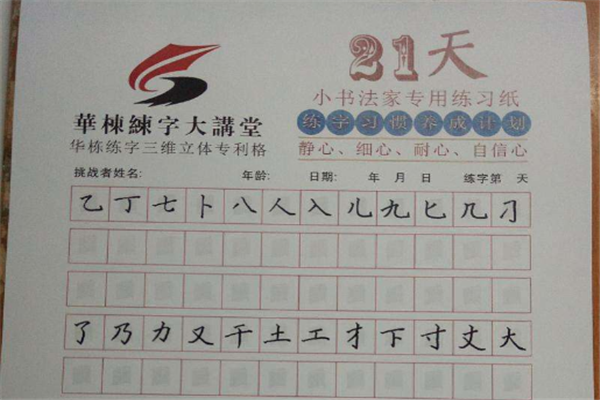 21天
華棟練字大講堂
小书法家专用练习纸
练字习惯养成计划
华栋练字三维立体专利格
静心、细心、耐心、自信心
挑战者姓名: 年龄: 日期: 年 月 日 练字第 天
乙丁七卜八人入儿九匕几刁
了乃力又干土工才下寸丈大